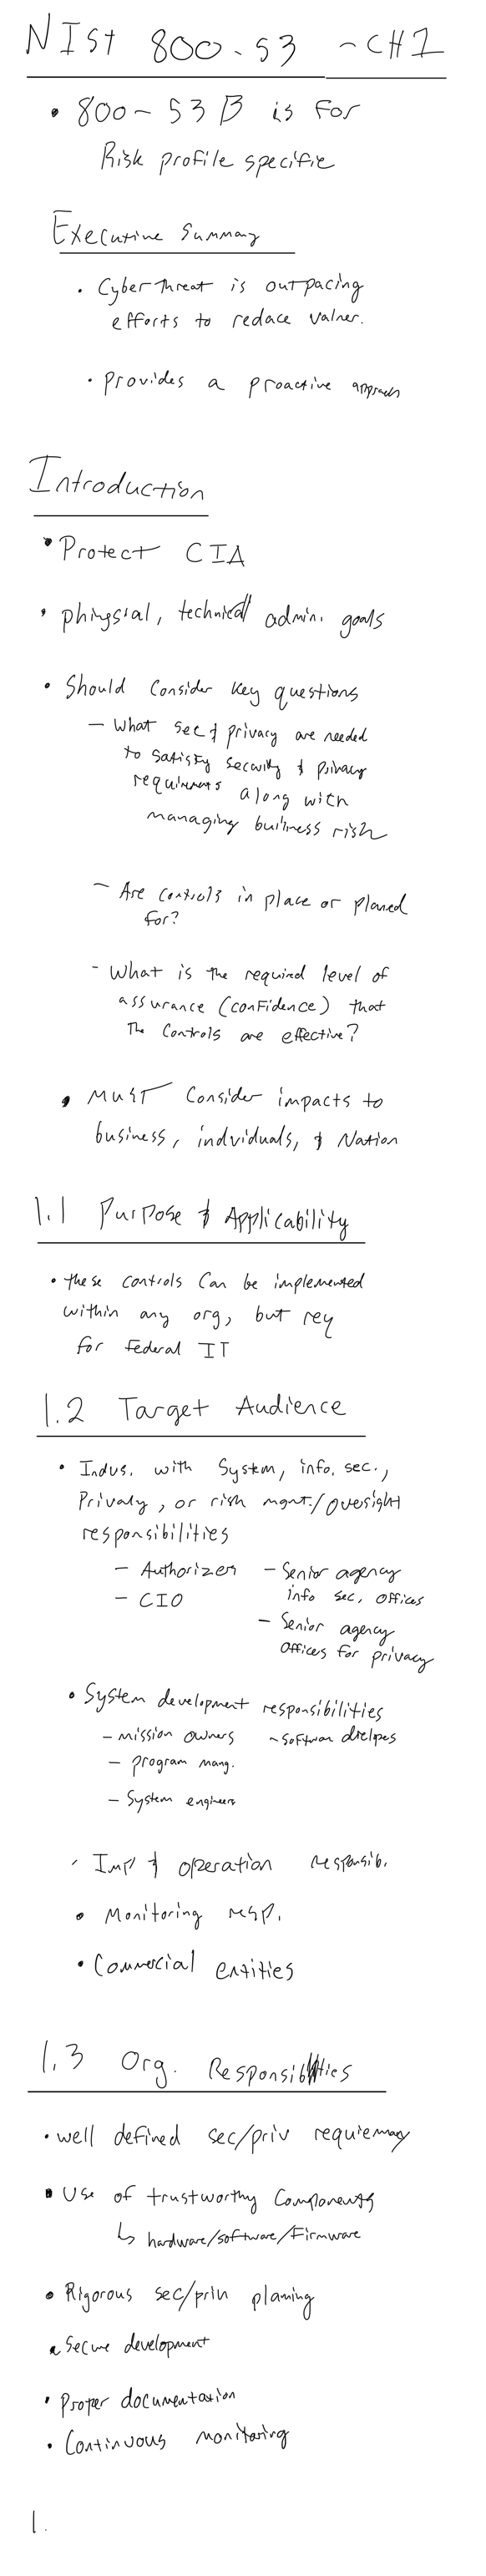 NIst 800-53 - CH1
• 800-53 B is for
Risk profile specific
Executive Summary
• Cyber threat is outpacing
efforts to reduce vulner.
• provides a proactive approach
Introduction
• Protect CIA
• phingsial, technical admin. goals
• Should Consider key questions
- What sec & privacy are needed
to satisfy security & privacy
requirements along with
managing business risk
- Are controls in place or planed
for?
- What is the required level of
assurance (confidence) that
the controls are effective?
• MUST Consider impacts to
business, indviduals, & Nation
1.1 Purpose & Applicability
• these controls can be implemented
within any org, but req
for Federal IT
1.2 Target Audience
• Indus. with System, info. sec.,
Privacy, or risk mgmt./oversight
responsibilities
- Authorizers - Senior agency
info sec. offices
- CIO
- Senior agency
offices for privacy
• System development responsibilities
- mission owners - software
- program mang.
- System engineers
• Imp & operation responsib.
• Monitoring resp.
• Commercial entities
1.3 Org. Responsibilities
• well defined sec/priv
• Use of trustworthy Components
↳ hardware/software/Firmware
• Rigorous sec/priv planing
• Secure development
• Proper documentation
• Continuous monitoring
1.